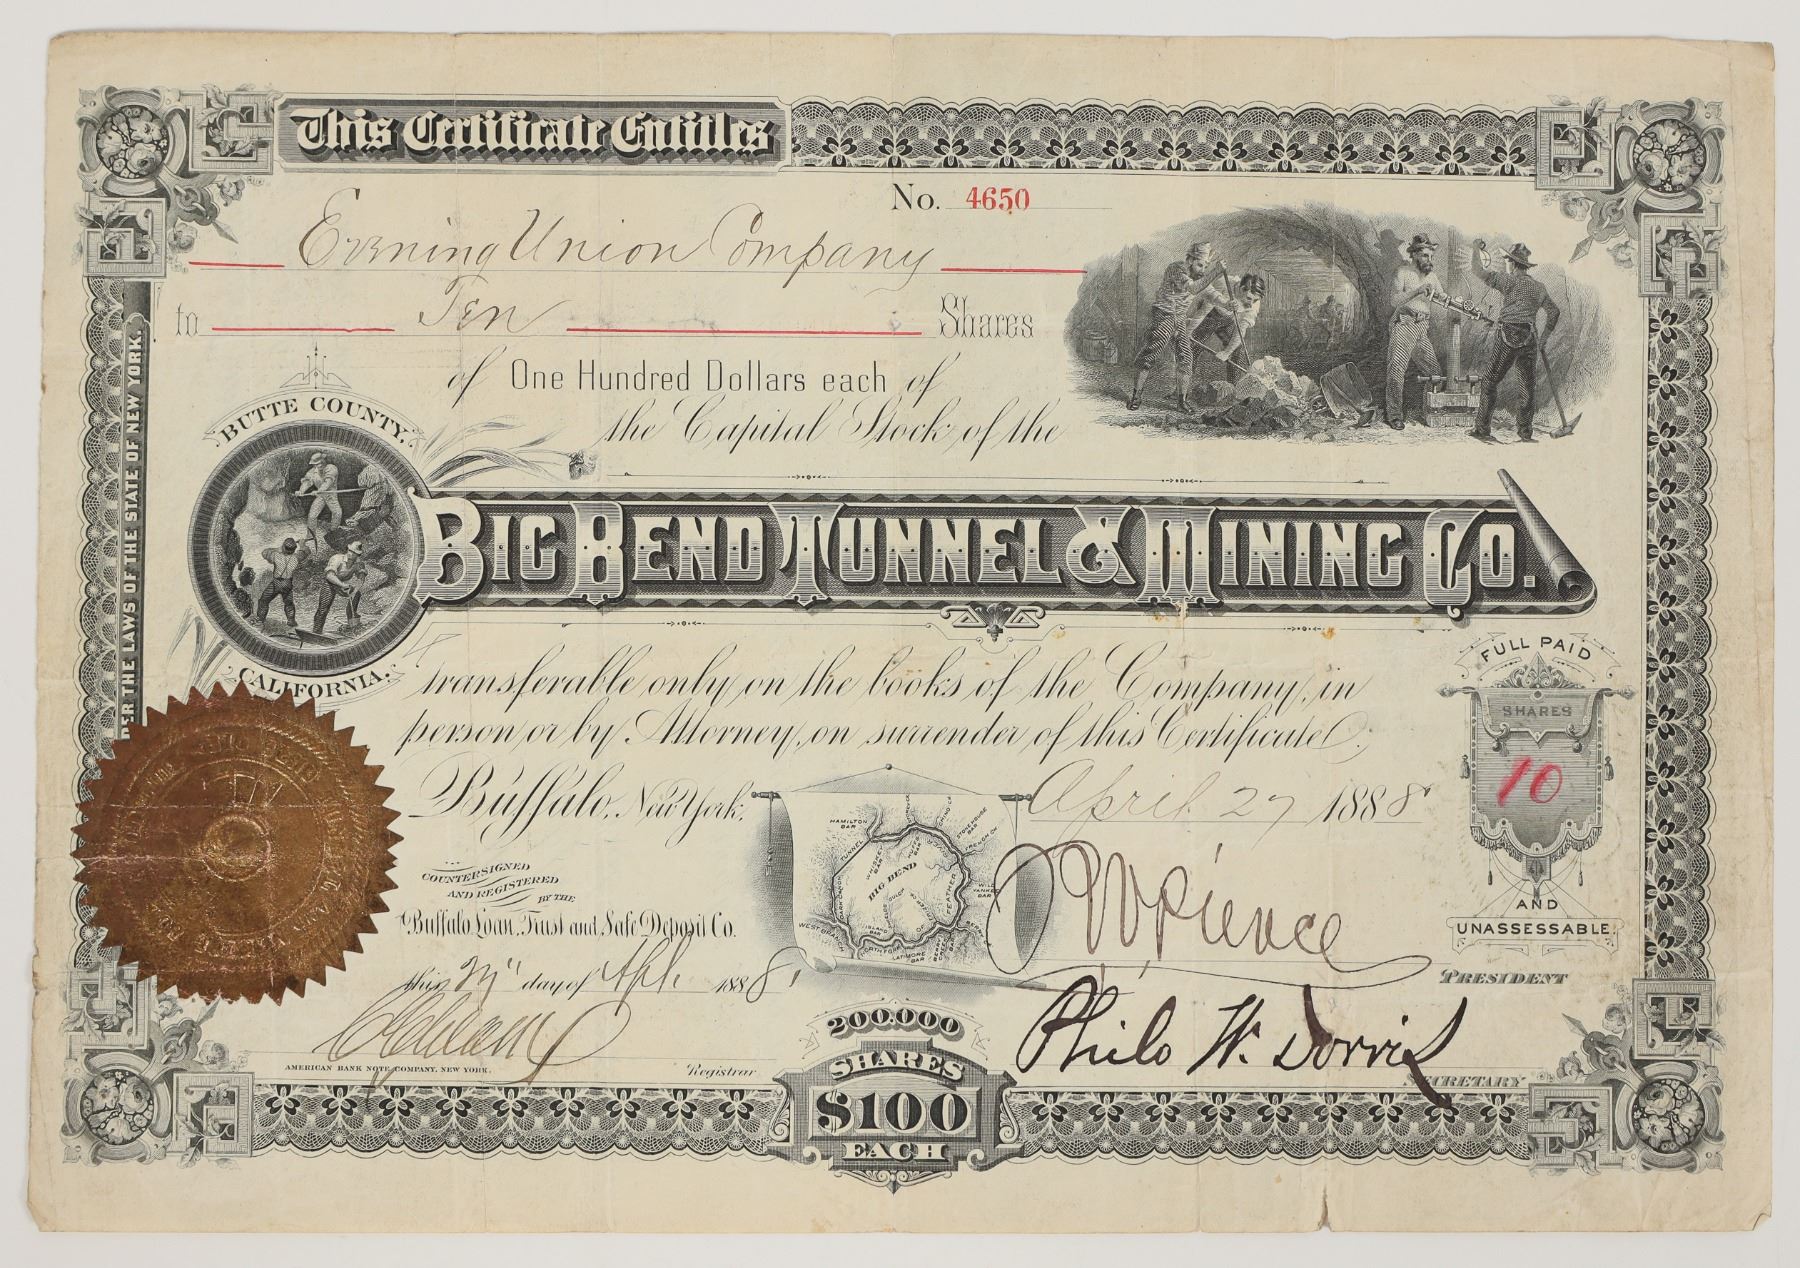 This Certificate Entitles
No. 4650
Evening Union Company
to Ten Shares
of One Hundred Dollars each of
the Capital Stock of the
BUTTE COUNTY,
CALIFORNIA.
BIG BEND TUNNEL & MINING CO.
DER THE LAWS OF THE STATE OF NEW YORK.
transferable only on the books of the Company, in
person or by Attorney, on surrender of this Certificate.
Buffalo, New York, April 27 1888
FULL PAID
SHARES
10
AND
UNASSESSABLE.
COUNTERSIGNED
AND REGISTERED
BY THE
Buffalo Loan, Trust and Safe Deposit Co.
this 27" day of Apl 1888
Registrar
AMERICAN BANK NOTE COMPANY, NEW YORK.
HAMILTON BAR
TUNNEL
BIG BEND
STONEHOUSE BAR
FRENCH CR
WEST BRANCH
ISLAND BAR
NORTH FORK OF FEATHER
LATIMORE BAR
Pierce
PRESIDENT
Philo W. Dorris
SECRETARY
200.000
SHARES
$100
EACH